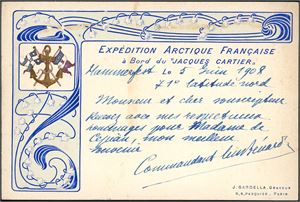 EXPÉDITION ARCTIQUE FRANÇAISE
à Bord du "JACQUES CARTIER"
Hammerfest Le 5 Juin 1908
71° latitude nord
Monsieur et cher souscripteur
Recevez avec mes respectueux
hommages pour Madame de
mon meilleur
souvenir
Commandant Bénard
J. GARDELLA, Graveur
PARIS